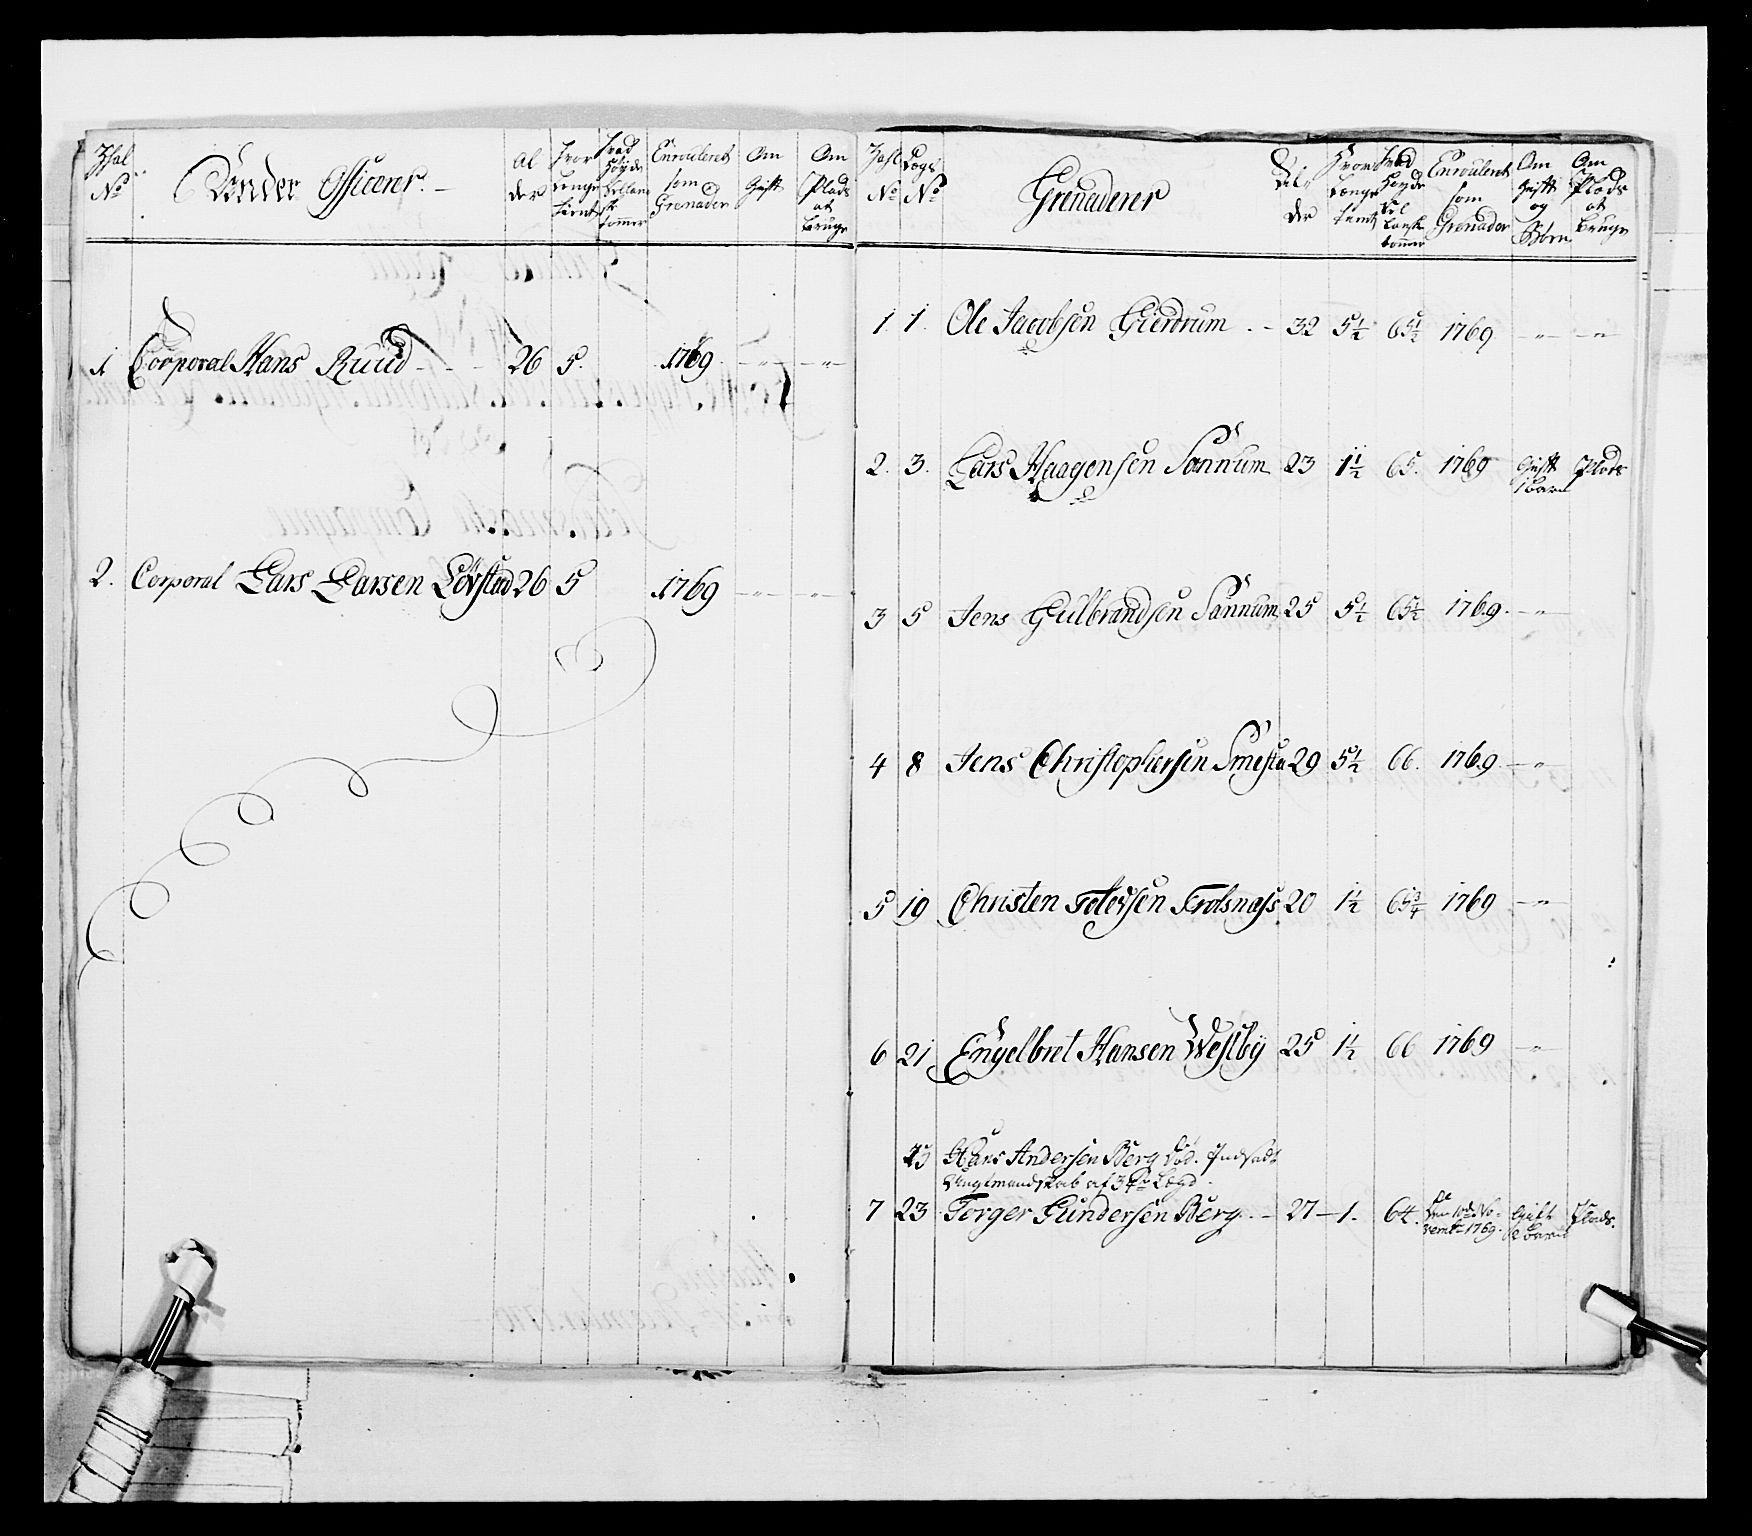 Zhal No
Under Officerer.
Al der
Hvor Lenge tient
Hvad Høyde tommer
Enrouleret som Grenader
Om Gift
Om Plads at bruge
1 Corporal Hans Ruud - - - 26 5. 1769 - " - - " -
2. Corporal Lars Larsen Lövstad 26 5 1769 - " - - " -
Zahl No
Lægs No
Grenaderer
Al der
Hvor Længe tient
Hvad Høyde tommer
Enrouleret som Grenader
Om Gift og Børn
Om Plads at bruge
1. 1. Ole Jacobsen Gierdrum . - 32 5½ 65½ 1769 - " - - " -
2. 3. Lars Haagensen Sannum 23 1½ 65. 1769 Gift 1 barn Plads
3 5 Jens Gulbrandsen Sannum 25 5½ 65½ 1769. - " -
4 8 Jens Christophersen Smesta 29 5½ 66. 1769. - " -
5 19 Christen Petersen Frolsnæss 20 1½ 65¾ 1769 - " -
6 21 Engelbret Hansen Westby 25 1½ 66 1769 - " -
23 Hans Andersen Berg död. Indsadt
Ungtmandskab af Lægd.
7 23 Torger Gundersen Berg. - 27 - 1. 64. 1769. Gift barn Plads.